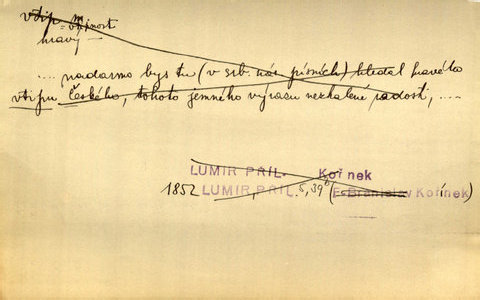 vtip
hravý
.... nadarmo bys tu (v srb. nár. písních) hledal pravého
vtipu českého, tohoto jemného výrazu nezkalené radosti, ....
LUMIR PRIL. Kořínek
1852 LUMIR PRIL. 5, 39 (E. Branislav Kořínek)